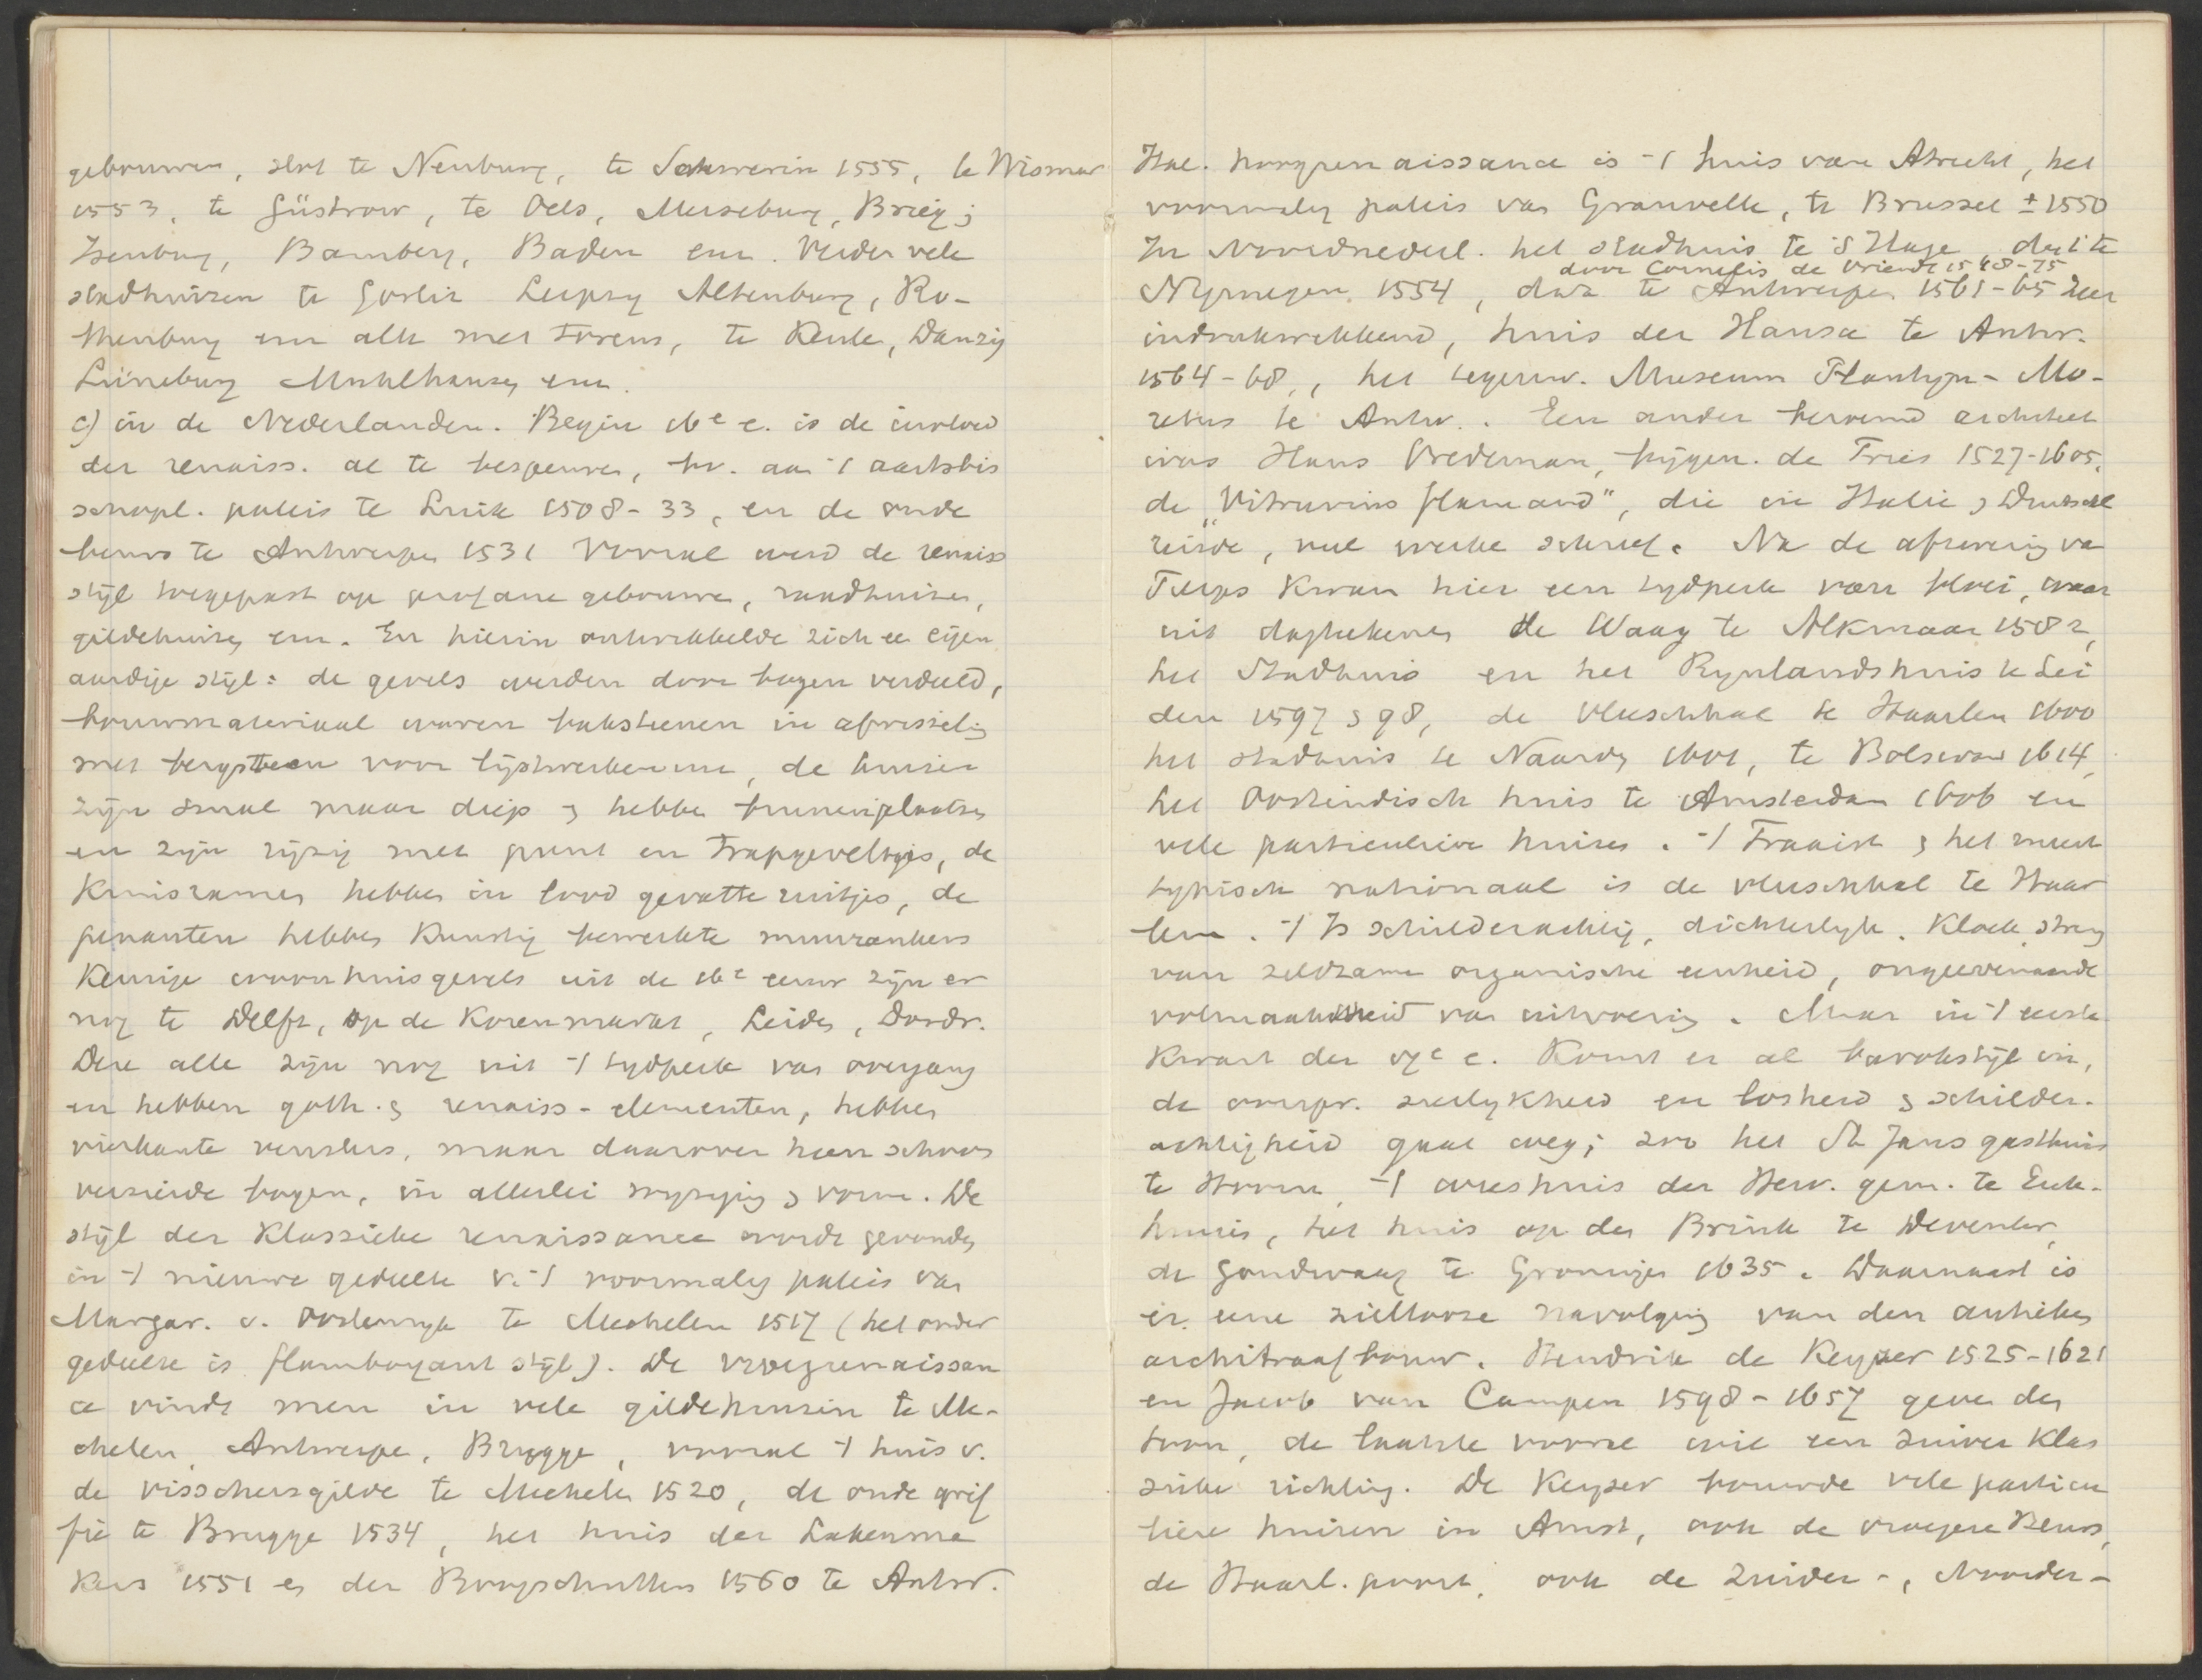 gebouwen, slot te Neuburg, te Schwerin 1555, te Wismar
1553, te Güstrow, te Oels, Merseburg, Brieg;
Isenburg, Bamberg, Baden enz. Verder vele
stadhuizen te Gorlitz Leipzig Altenburg, Ro-
thenburg enz alle met torens, te Keulen, Danzig
Lüneburg Muhlhausen enz.
c) in de Nederlanden. Begin 16e e. is de invloed
der renaiss. al te bespeuren, bv. aan 't aartsbis
schopl. paleis te Luik 1508-33, en de oude
beurs te Antwerpen 1531 Vooral werd de renaiss
stijl toegepast op profane gebouwen, raadhuizen,
gildehuizen enz. En hierin ontwikkelde zich een eigen
aardige stijl: de gevels werden door bogen verdeeld,
bouwmateriaal waren bakstenen in afwisseling
met bergsteen voor lijstwerken enz, de huizen
zijn smal maar diep & hebben binnenplaatsen
en zijn rijzig met punt en trapgeveltjes, de
kruisramen hebben in lood gevatte ruitjes, de
penanten hebben kunstig bewerkte muurankers
Keurige woonhuisgevels uit de 16e eeuw zijn er
nog te Delft, op de Korenmarkt, Leiden, Dordr.
Deze alle zijn nog uit 't tydperk van overgang
en hebben goth. & renaiss-elementen, hebben
vierkante vensters, maar daarover heen schoon
versierde bogen, in allerlei wyziging & vorm. De
stijl der Klassieke renaissance wordt gevonden
in 't nieuwe gedeelte v. 't voormalig paleis van
Margar. v. Oostenryk te Mechelen 1517 (het ander
gedeelte is flamboyant stijl). De vroegrenaissan
ce vindt men in vele gildehuizen te Me-
chelen, Antwerpen, Brugge, vooral 't huis v.
de visschersgilde te Mechelen 1520, de oude grif
fie te Brugge 1534, het huis der Lakenma
kers 1551 en der Boogschutters 1560 te Antw.
Ital. hoogrenaissance is 't huis van Atrecht, het
voormalig paleis van Granvelle, te Brussel ± 1550
In Noordnederl. het stadhuis te 's Hage, dat te
door Cornelis de Vriendt 1548-75
Nijmegen 1554, dat te Antwerpen 1561-65 zeer
indrukwekkend, huis der Hansa te Antw.
1564-68, het tegenw. Museum Plantijn-Mo-
retus te Antw. Een ander beroemd architect
was Hans Vredeman, bijgen. de Vries 1527-1605,
de "Vitruvius flamand", die in Italie & Duitschl
reisde, veel werken schreef. Na de afzwering van
Filips kwam hier een tydperk van bloei, waar
uit dagtekenen de Waag te Alkmaar 1582,
het Stadhuis en het Rynlandshuis te Lei
den 1597 & 98, de vleeschhal te Haarlem 1600
het stadhuis te Naarden 1601, te Bolsward 1614,
het Oostindisch huis te Amsterdam 1606 en
vele particuliere huizen. 't Fraaist & het meest
typisch nationaal is de vleeschhal te Haar
lem. 't Is schilderachtig, dichterlyk. Kloek, streng
van zeldzame organische eenheid, ongeevenaarde
volmaaktheid van uitvoering. Maar in 't eerste
kwart der 17e e. komt er al barokstijl in,
de oorspr. sierlykheid en losheid & schilder-
achtigheid gaat weg; zoo het St Jans gasthuis
te Hoorn, 't weeshuis der Herv. gem. te Enk-
huizen, het huis op den Brink te Deventer,
de Goudwaag te Groningen 1635. Daarnaast is
er eene ziellooze navolging van den antieken
architraafbouw. Hendrik de Keyzer 1525-1621
en Jacob van Campen 1598-1657 geven den
toon, de laatste vooral wil een zuiver klas
sieke richting. De Keyzer bouwde vele particu
liere huizen in Amst, ook de vroegere Beurs,
de Haarl. poort, ook de Zuider-, Noorder-